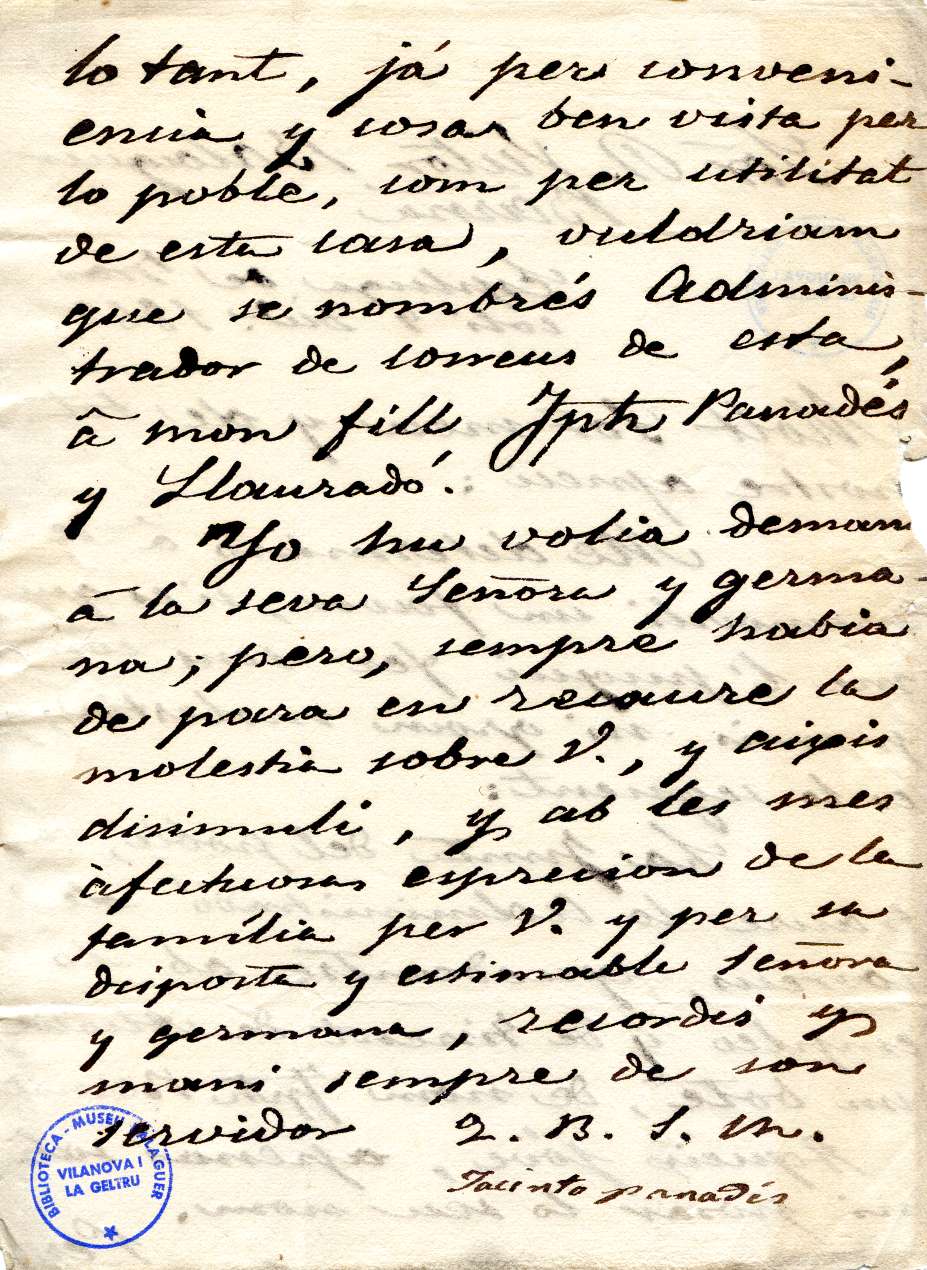 lo tant, já per conveni-
encia y cosa ben vista per
lo poble, com per utilitat
de esta casa, vuldriam
que se nombrés Adminis-
trador de correus de esta,
â mon fill Jph Panadés
y Llauradó.
Yo hu volia deman
â la seva Señora y germa-
na; pero, sempre habia
de para en recaure la
molestia sobre V., y aixis
disimuli, y ab les mes
àfectuosas esprecion de la
família per V. y per sa
dispósta y estimable señora
y germana, recordis y
mani sempre de son
servidor Q. B. S. M.
Jacinto Panadés
BIBLIOTECA - MUSEU BALAGUER
VILANOVA I
LA GELTRU